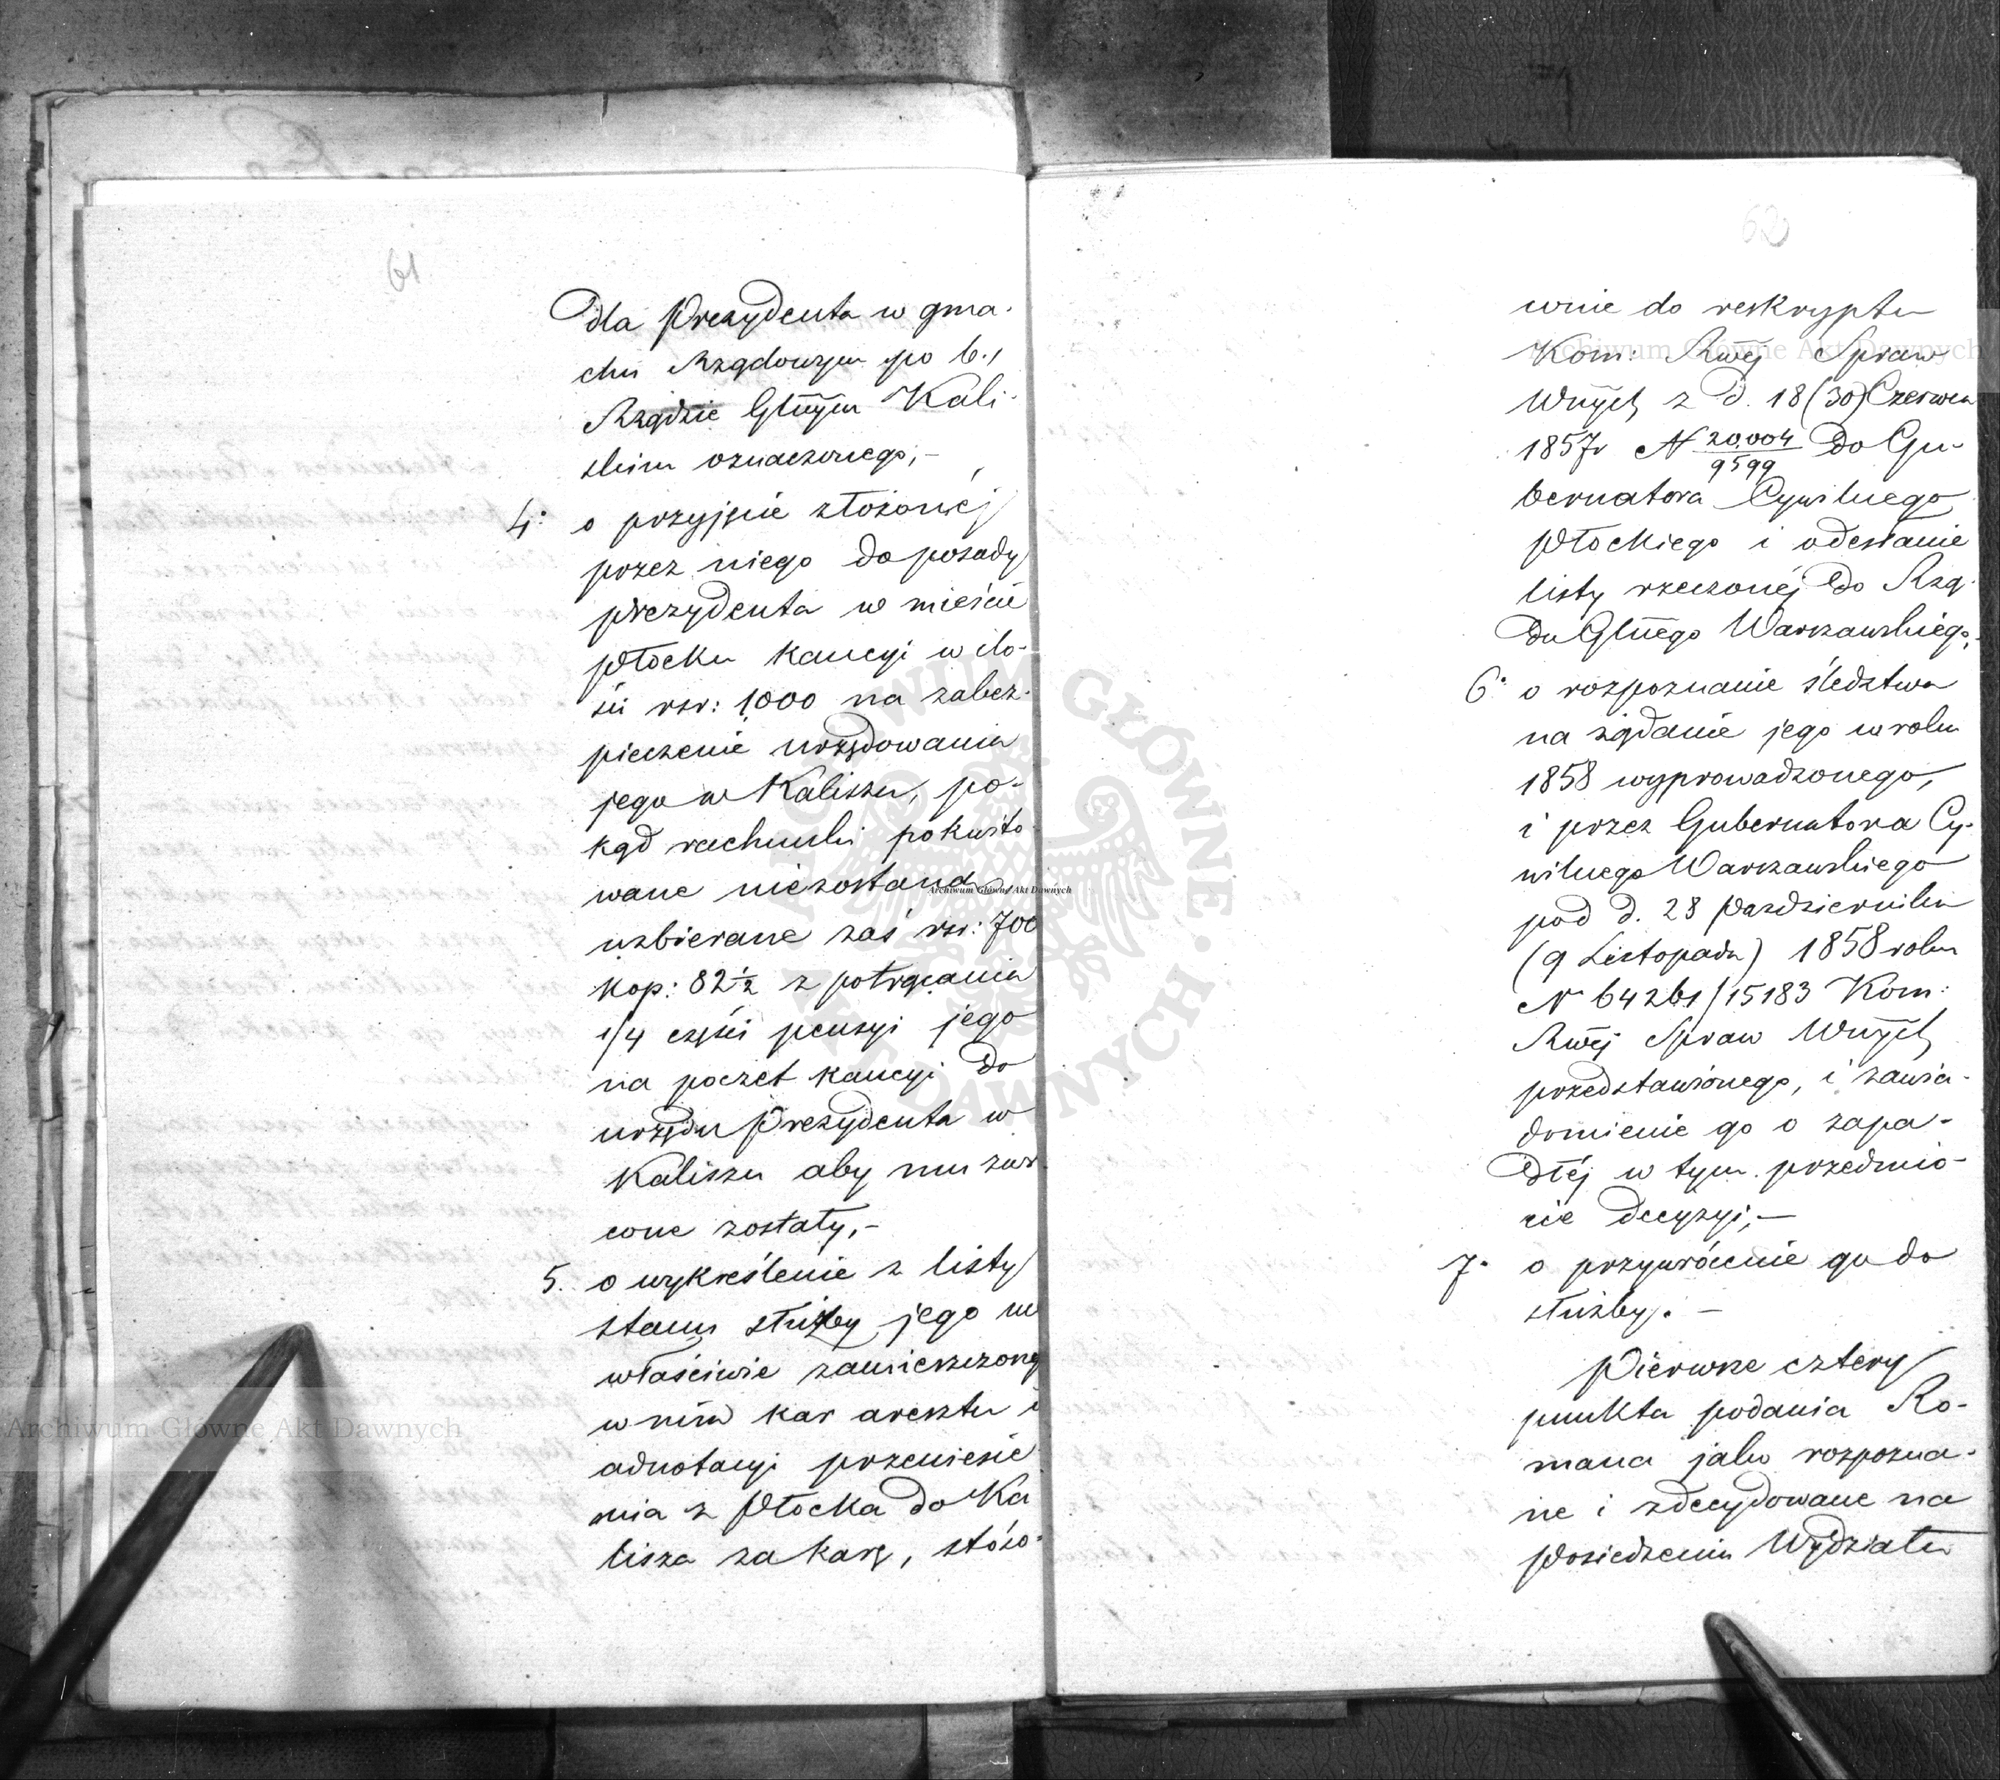 61
dla Prezydenta w gma-
chu Rządowym po b.,
Rządzie Głnym Kali-
skim oznaczonego,-
4. o przyjęcie złożonéj
przez niego do posady
prezydenta w mieście
Płocku kaucyi w ilo-
ści rsr: 1,000 na zabez-
pieczenie urzędowania
jego w Kaliszu, po-
kąd rachunki pokwito-
wane niezostaną
uzbierane zaś rsr: 700
kop: 82½ z potrącania
1/4 części pensyi jego
na poczet kaucyi do
urzędu Prezydenta w
Kaliszu aby mu zwr
cone zostały,-
5. o wykreślenie z listy
stanu służby jego nie
właściwie zamieszczoną
w nim kar aresztu i
adnotacyi przeniesie
nia z Płocka do Ka
lisza za karę, stóso-
62
wnie do reskryptu
Kom: Rwéj Spraw
Wnych z d. 18 (30) Czerwca
1857r N 20,004/9599 do Gu-
bernatora Cywilnego
Płockiego i odesłanie
listy rzeczonéj do Rzą-
du Głnego Warszawskiego,
6. o rozpoznanie śledztwa
na żądanie jego w roku
1858 wyprowadzonego,
i przez Gubernatora Cy-
wilnego Warszawskiego
pod d. 28 Października
(9 Listopada) 1858 roku
N 64261/15183 Kom:
Rwéj Spraw Wnych
przedstawionego, i zawia-
domienie go o zapa-
dłéj w tym przedmio-
cie decyzyi,-
7. o przywrócenie go do
służby. -
Pierwsze cztery
punkta podania Ro-
mana jako rozpozna-
ne i zdecydowane na
Posiedzeniu Wydziału
Archiwum Główne Akt Dawnych
Archiwum Główne Akt Dawnych
Archiwum Główne Akt Dawnych
ARCHIWUM GŁÓWNE AKT DAWNYCH